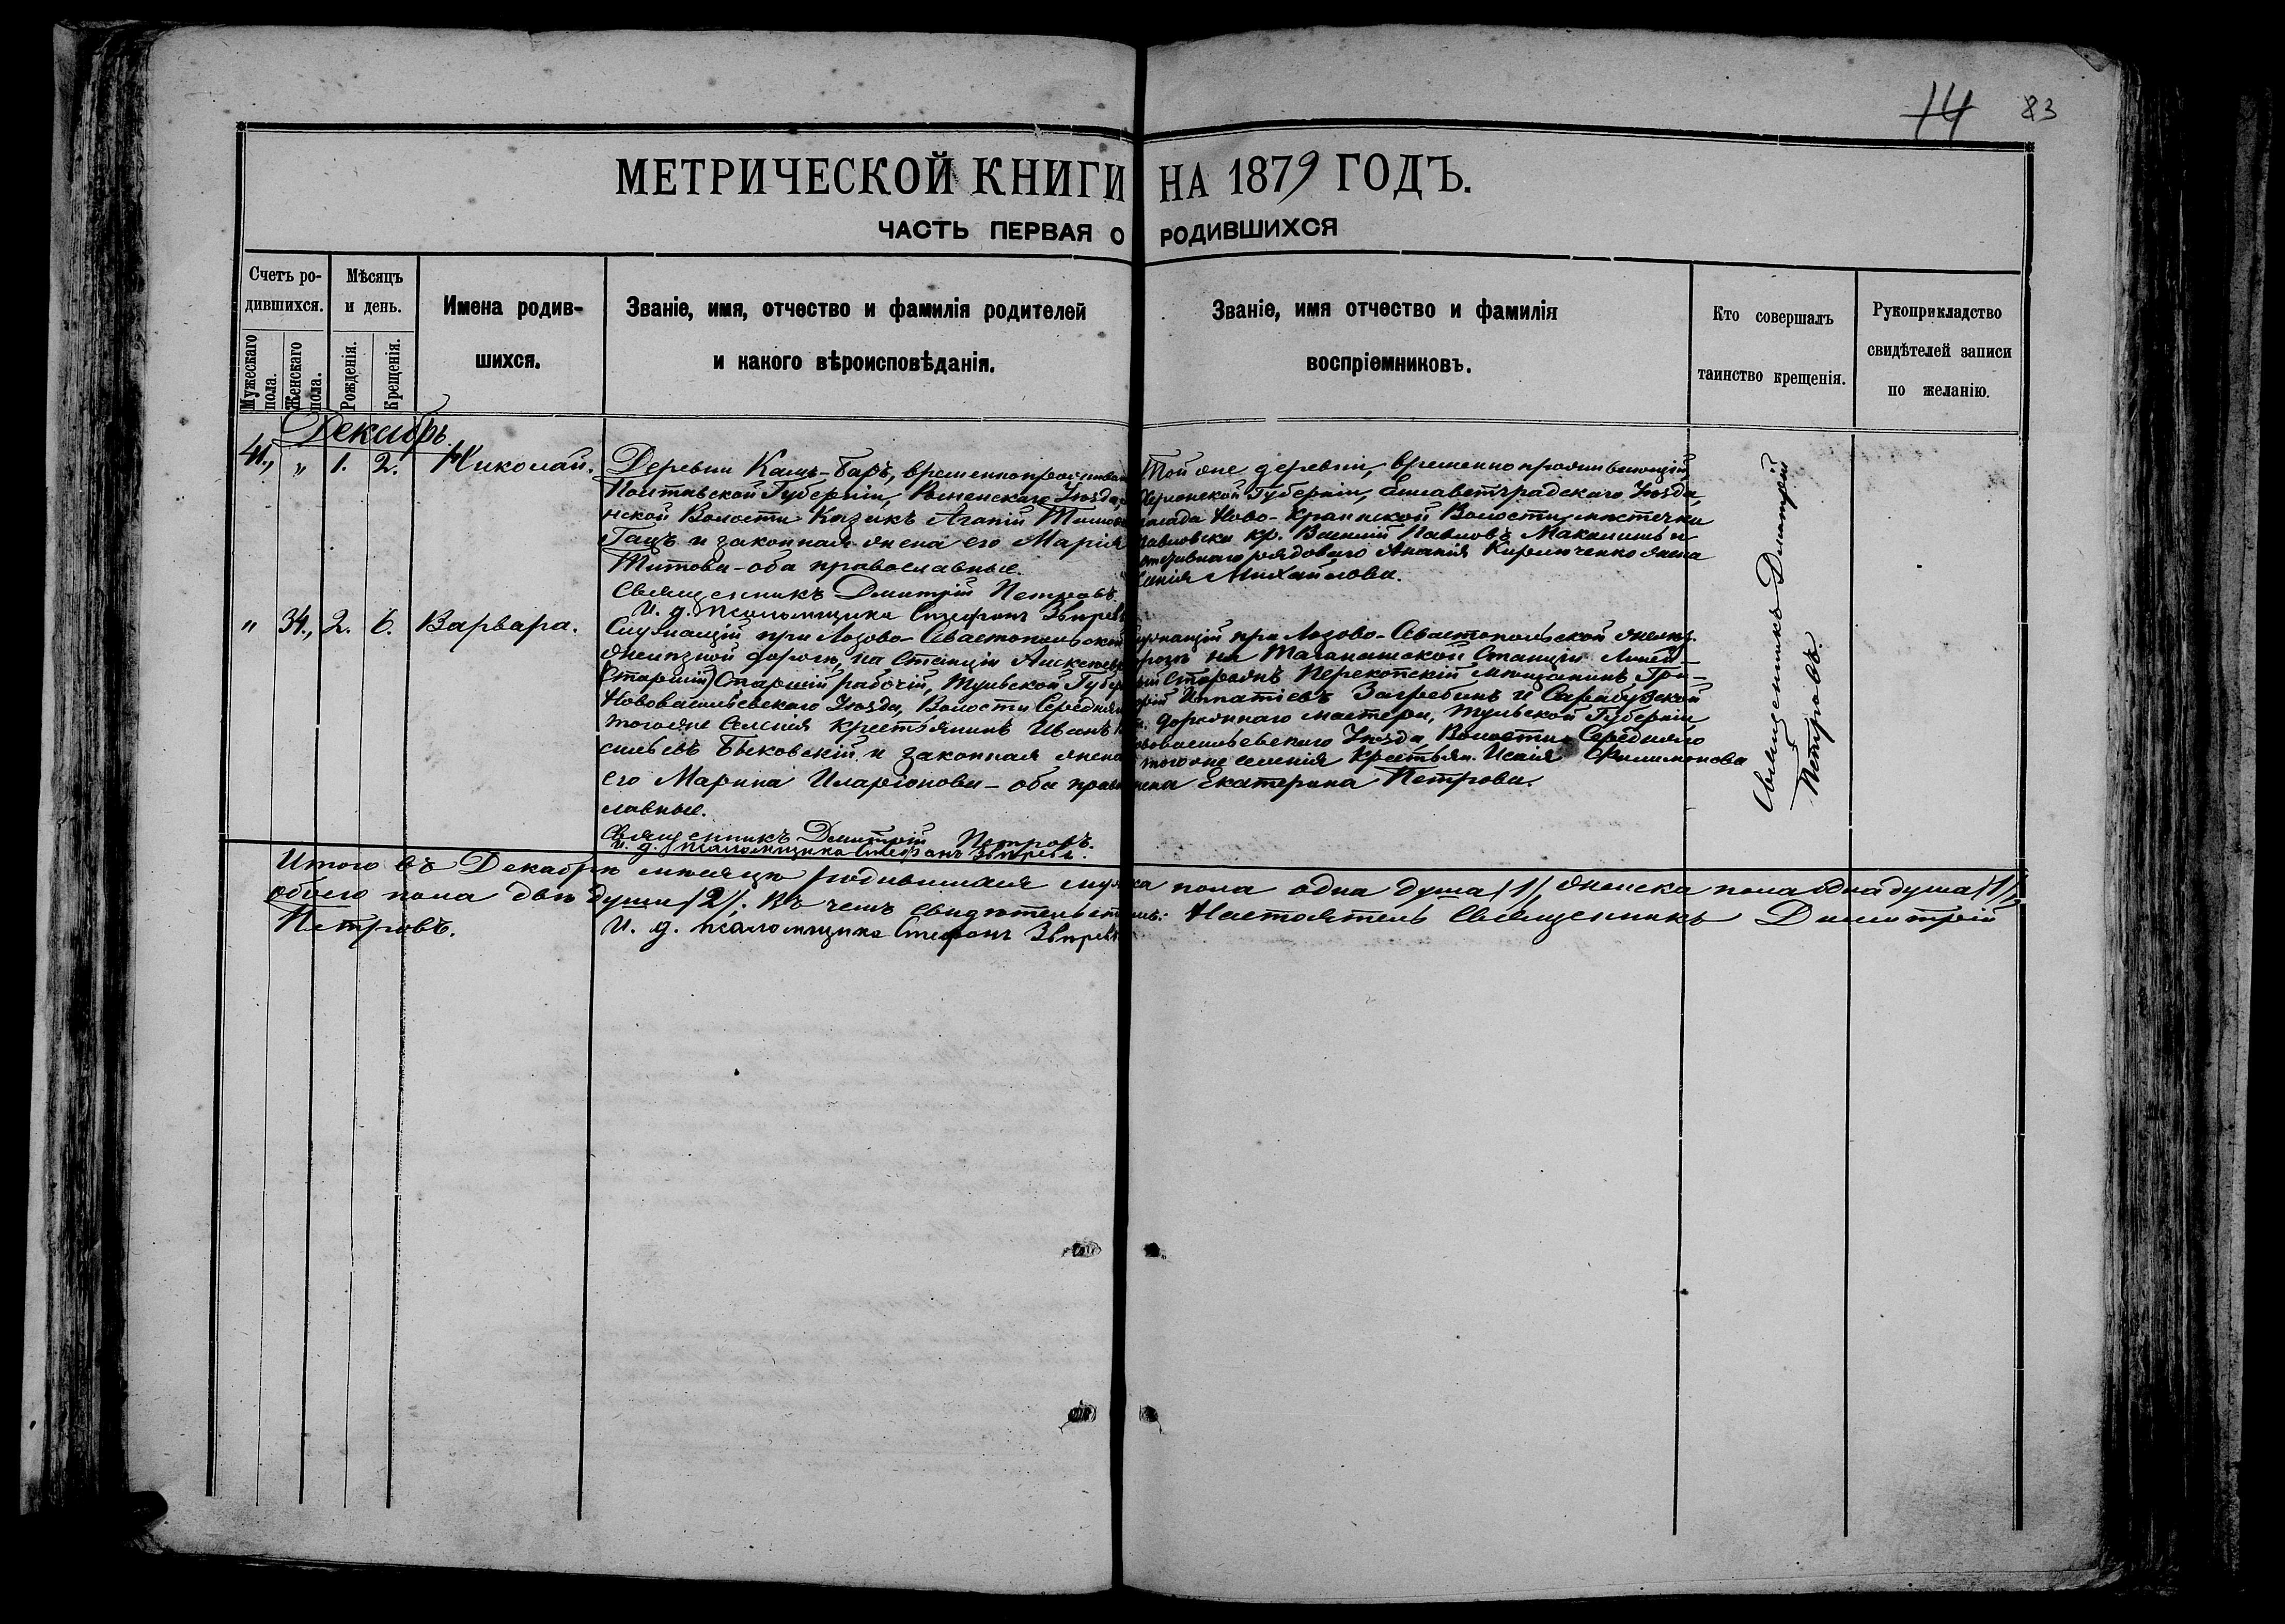 14 83
МЕТРИЧЕСКОЙ КНИГИ НА 1879 ГОДЪ.
ЧАСТЬ ПЕРВАЯ О РОДИВШИХСЯ
Счетъ ро-
дившихся.
Мужескаго пола.
Женскаго пола.
Мѣсяцъ
и день.
Рожденія.
Крещенія.
Имена родив-
шихся.
Званіе, имя, отчество и фамилія родителей
и какого вѣроисповѣданія.
Званіе, имя отчество и фамилія
воспріемниковъ.
Кто совершалъ
таинство крещенія.
Рукоприкладство
свидѣтелей записи
по желанію.
Декабрь
41., „ 1. 2. Николай.
Деревни временно
Полтавской Губерніи, Роменскаго Уѣзда,
нской Волости Козакъ Агапій
Гацъ и законная жена его Марія
Титова - оба православные.
Священникъ Димитрій Петровъ.
И. д. псаломщика Стефанъ Звѣрев
Той же деревни, временно проживающій,
Херсонской Губерніи, Елисаветградскаго Уѣзда,
Ново-Украинской Волости, мѣстечка
Павловки кр. Василій Павловъ и
рядоваго Ананія Кирпиченко жена
Михайлова.
„ 34., 2. 6. Варвара.
Служащій при Лозово-Севастопольской
желѣзной дороги, на Станціи
(Старшій) Старшій рабочій, Тульской Губер
Новосильевскаго Уѣзда, Волости Середняго
того же Селенія крестьянинъ Иванъ
сильевъ Быковскій и законная жена
его Марина Иларіонова - оба право
славные.
Священникъ Димитрій Петровъ.
И. д. псаломщика Стефанъ Звѣрев.
служащій при Лозово-Севастопольской желѣз.
на Таганашской Станціи Линей-
Сторожъ Перекопскій мѣщанинъ Гри-
горій Ипатіевъ Загребинъ и Сарабузской
дорожнаго мастера, Тульской Губерніи
Уѣзда Волости Середняго
того же селенія Крестьян. Исаія Филимонова
жена Екатерина Петрова.
Священникъ Димитрій
Петровъ.
Итого въ Декабрѣ мѣсяцѣ родившихся мужеска пола одна душа /1/, женска пола одна душа /1/,
обоего пола двѣ души /2/. Въ чемъ свидѣтельствуемъ: Настоятель Священникъ Димитрій
Петровъ.
И. д. псаломщика Стефанъ Звѣрев